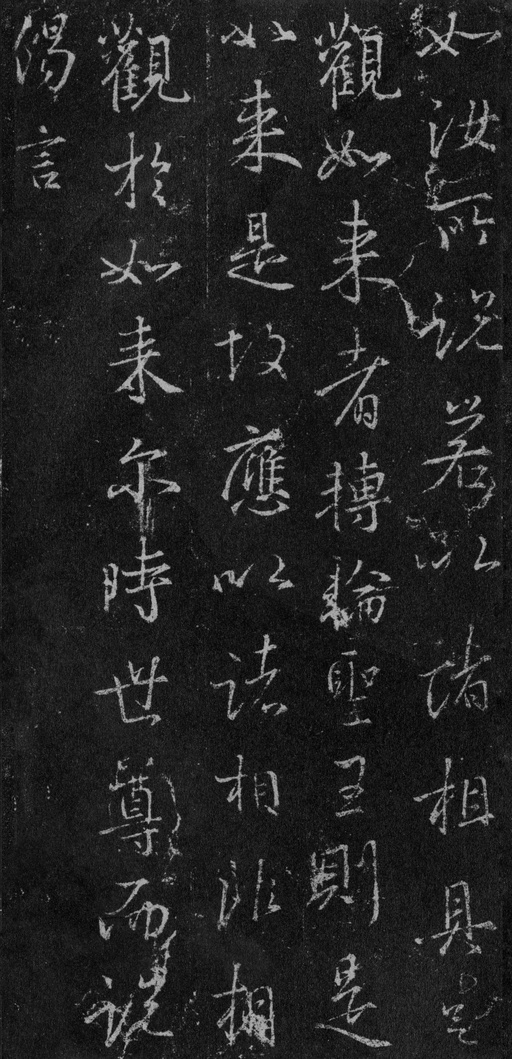 如汝所說若以諸相具足
觀如来者轉輪聖王則是
如来是故應以諸相非相
觀於如来尒時世尊而說
偈言